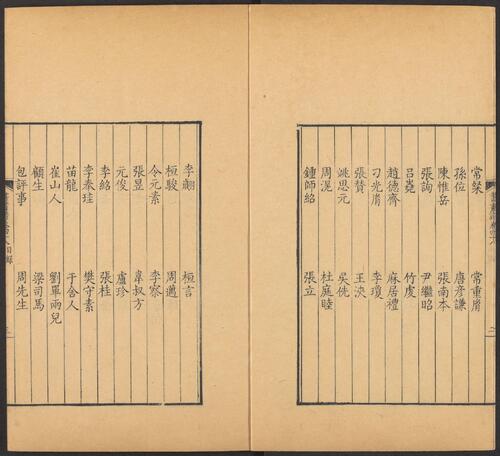 常粲 常重胤
孫位 唐彦謙
陳惟岳 張南本
張詢 尹繼昭
呂嶤 竹虔
趙德齊 麻居禮
刁光胤 李瓊
張贊 王泱
姚思元 吳侁
周滉 杜庭睦
鍾師紹 張立
李翽 桓言
桓駿 周邁
令元素 李察
張昱 韋叔方
元俊 盧珍
李紹 張桂
李泰珪 樊守素
苗龍 于舍人
崔山人 劉畢兩兒
顧生 梁司馬
包評事 周先生